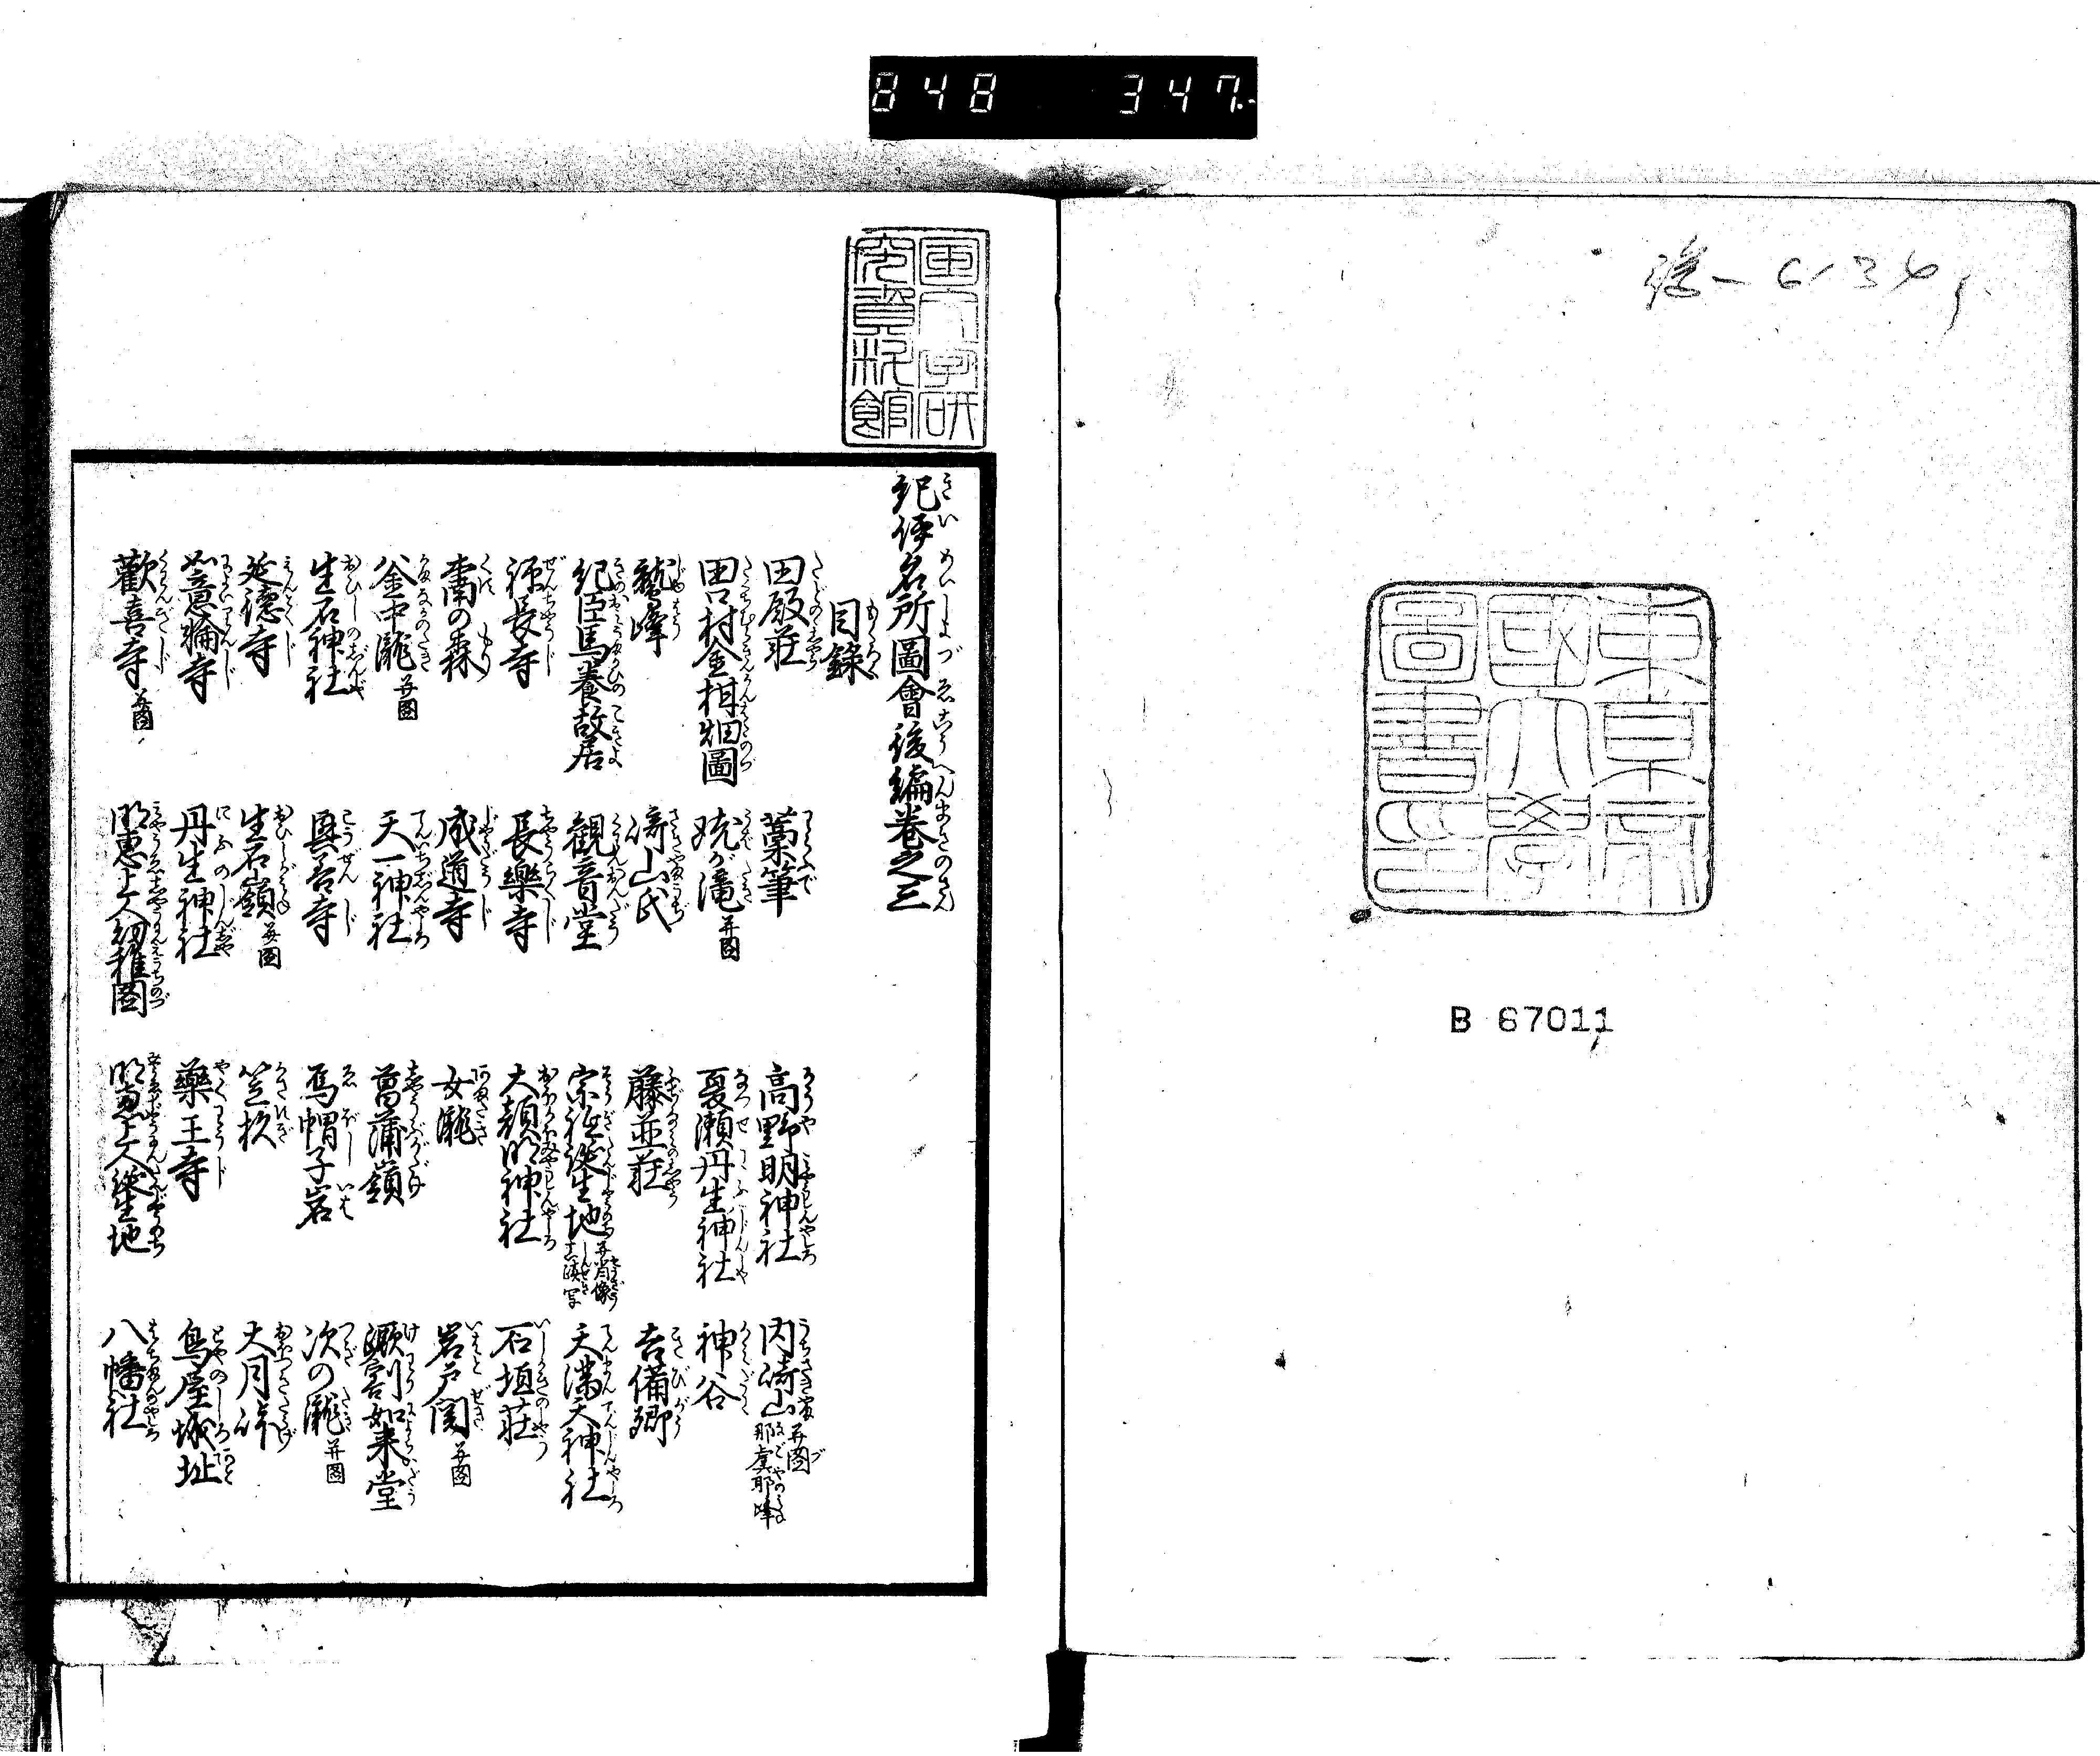 848 347
後-6134
東京帝
国大学
図書印
B 67011
国文学研
究資料館
紀伊名所圖會後編巻之三
目録
田殿莊
藁筆
高野明神社
内﨑山 并図 那耆耶峰
田口村金柑畑圖
夏瀬丹生神社
神谷
鷲峰
﨑山氏
藤並莊
吉備郷
紀臣馬養故居
觀音堂
宗祇誕生地 并肖像 真蹟写
天満天神社
禅長寺
長樂寺
大顔明神社
石垣莊
の森
成道寺
女瀧
岩戸関 并図
釜中瀧 并図
天一神社
菖蒲嶺
生石神社
興善寺
烏帽子岩
次の瀧 并図
延德寺
生石嶺 并図
笠松
大月峠
如意輪寺
丹生神社
藥王寺
鳥屋城址
歡喜寺 并図
明恵上人幼稚圖
明恵上人誕生地
八幡社